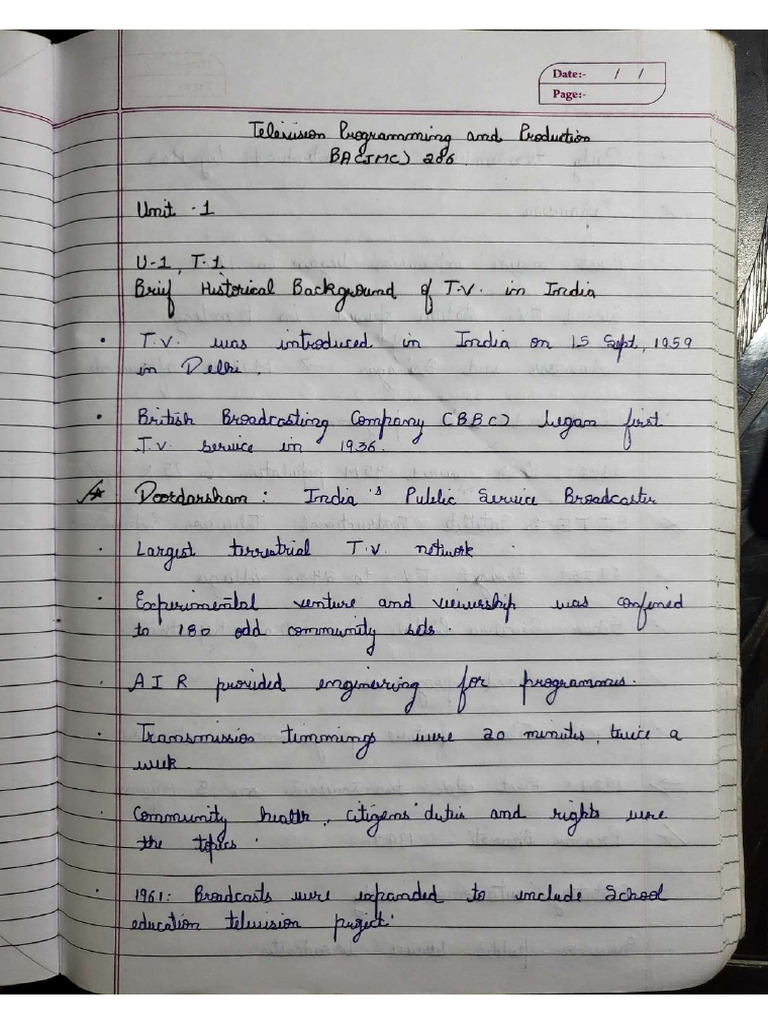 Date:- / /
Page:-
Television Programming and Production
BA(JMC) 286.
Unit -1
U-1, T.1
Brief Historical Background of T.V. in India
• T.V. was introduced in India on 15 Sept, 1959
in Delhi.
• British Broadcasting Company (BBC) began first
T.V. service in 1936.
Doordarsham: India's Public Service Broadcaster
• Largest terrestrial T.V. network
• Experimental venture and viewership was confined
to 180 odd community sets.
• AIR provided engineering for programmes.
• Transmission timmings were 20 minutes, twice a
week.
• Community health, citizens' duties and rights were
the topics.
• 1961: Broadcasts were expanded to include School
education television project.